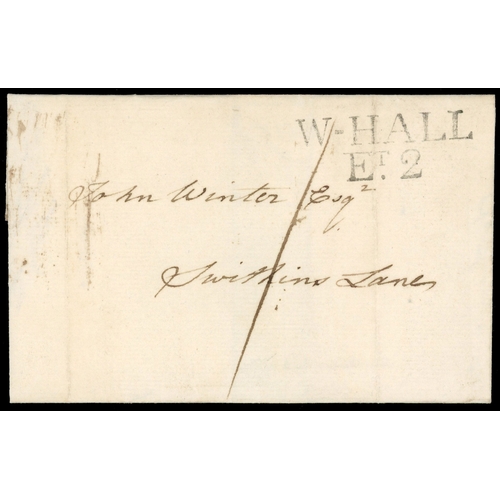 W-HALL
Eᵀ. 2
John Winter Esqr
Swithins Lane